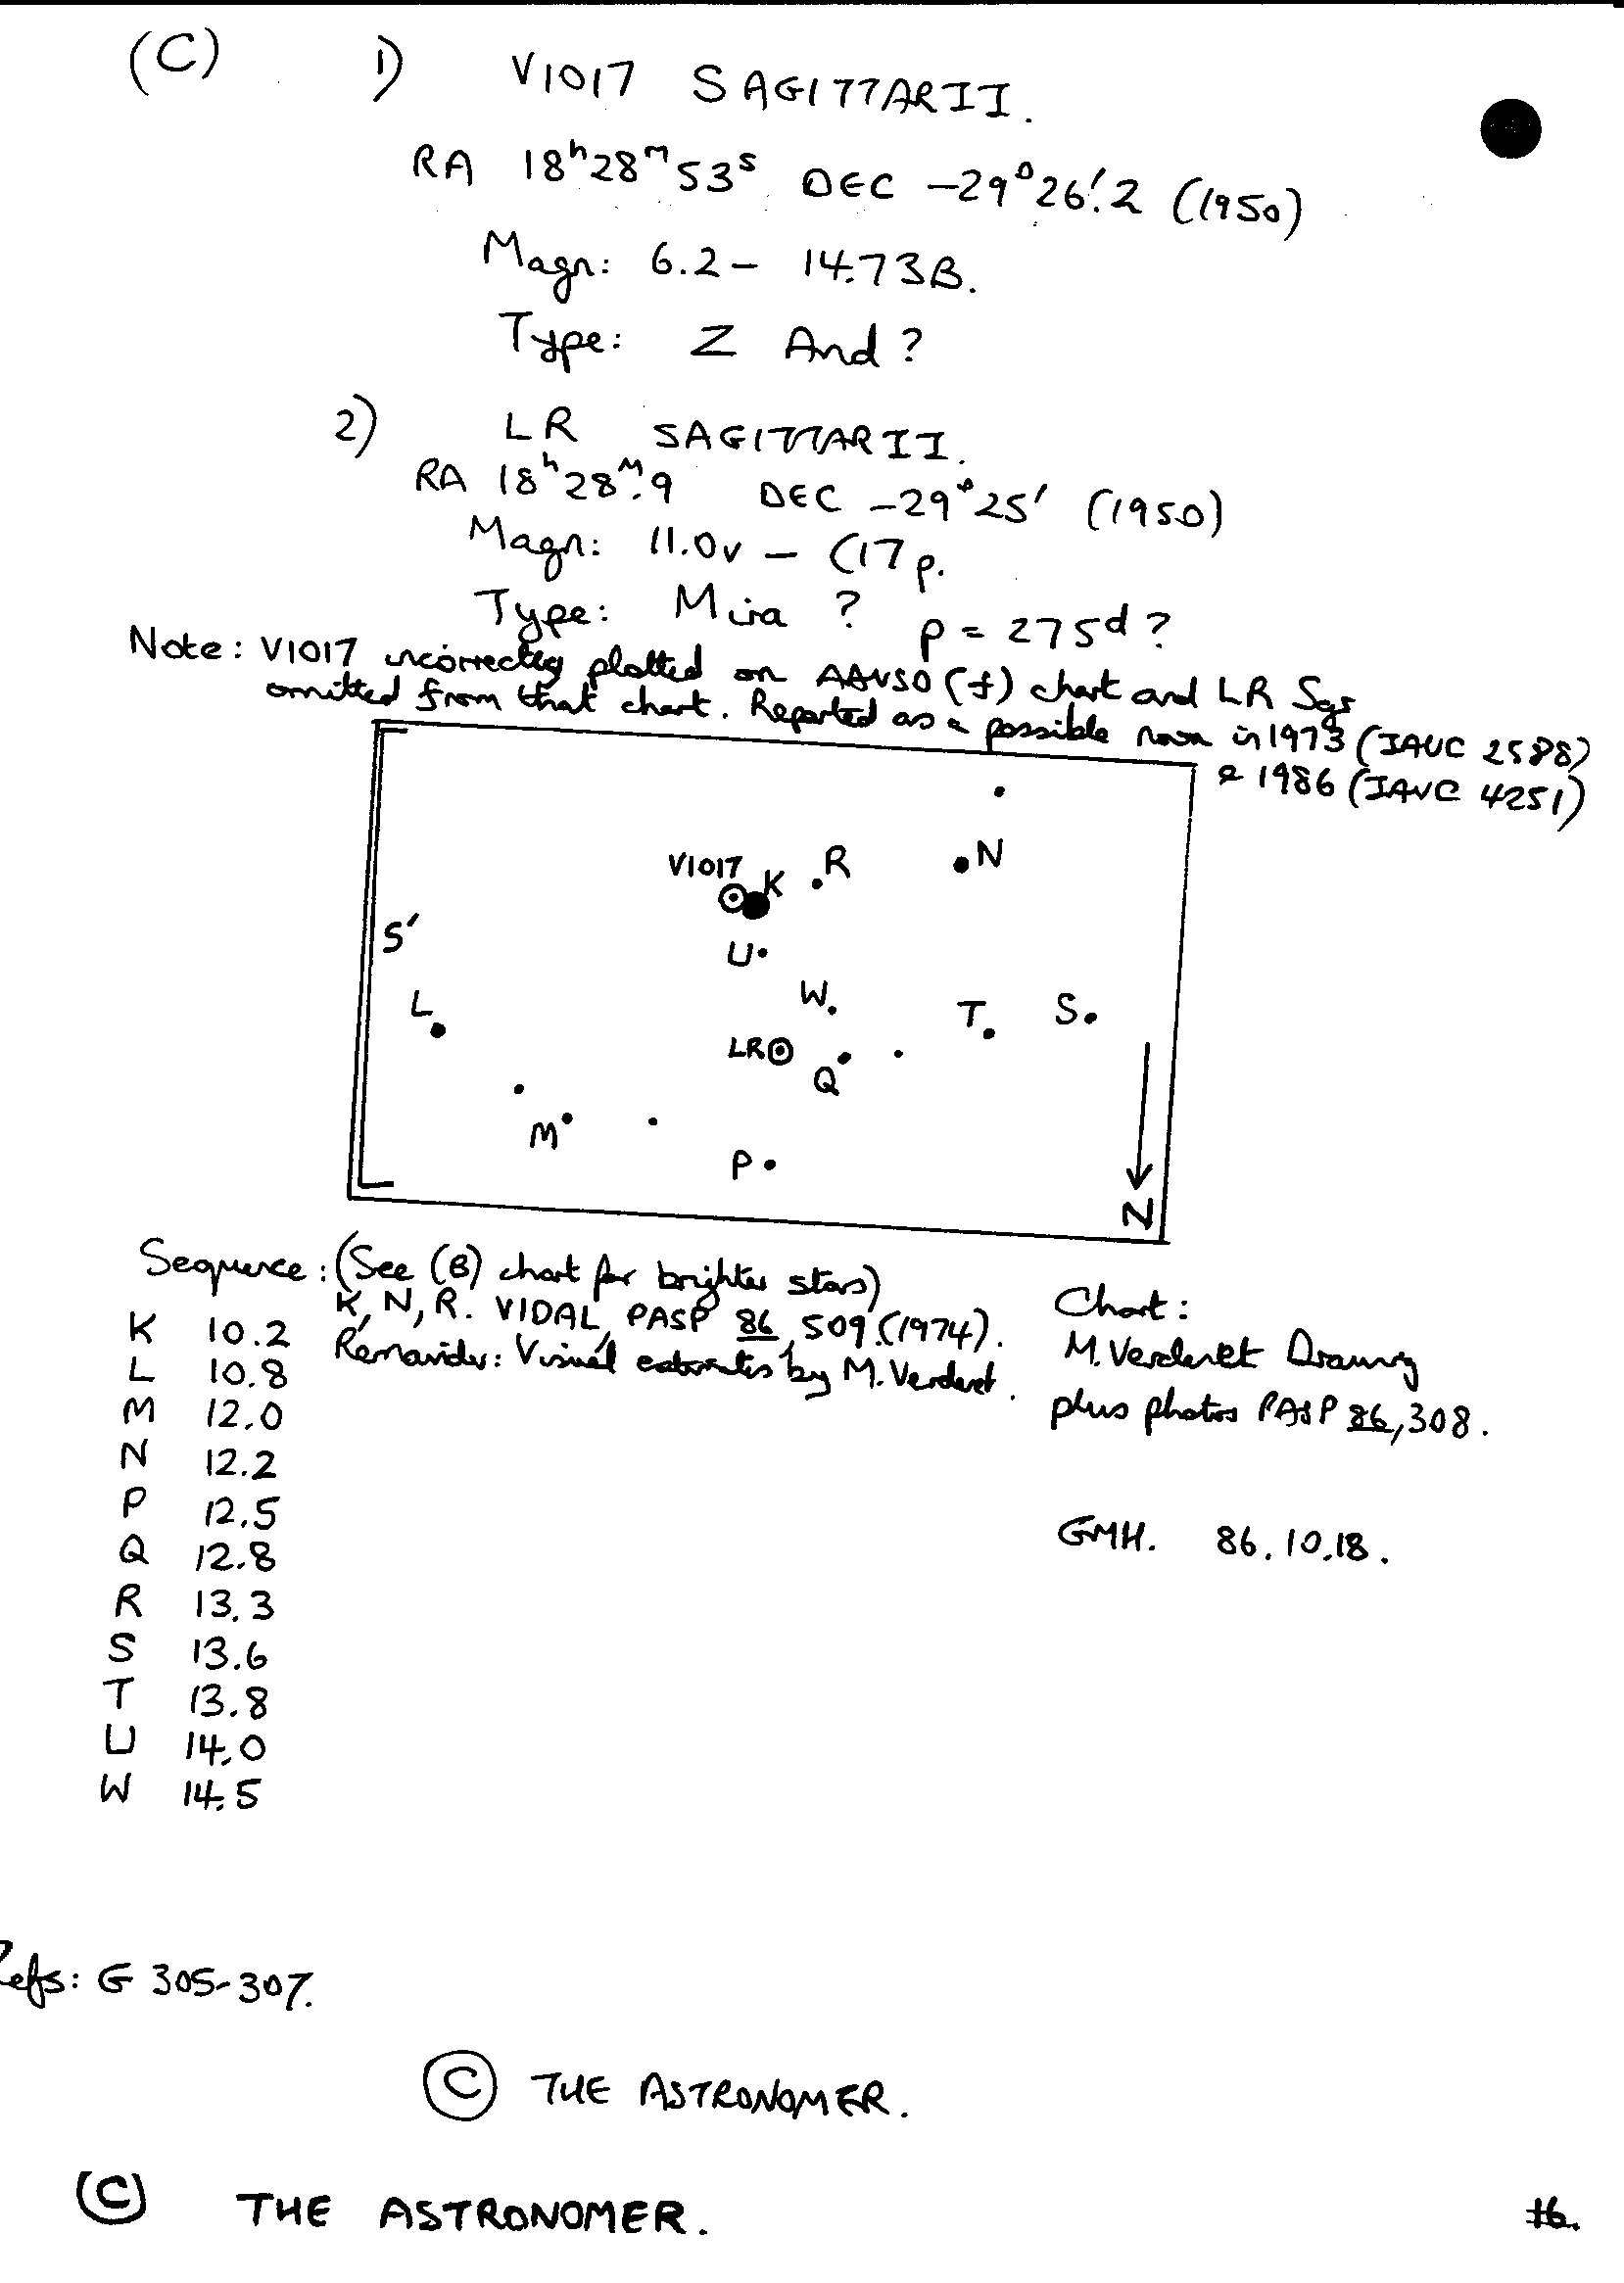 (C) 1) V1017 SAGITTARII.
RA 18ʰ28ᵐ53ˢ DEC -29°26!2 (1950)
Magn: 6.2 - 14.73B.
Type: Z And ?
2) LR SAGITTARII.
RA 18ʰ28ᵐ.9 DEC -29°25' (1950)
Magn: 11.0v - (17p.
Type: Mira ? p = 275d ?
Note: V1017 incorrectly plotted on AAVSO (f) chart and LR Sgr
omitted from that chart. Reported as a possible nova in 1973 (IAUC 2588)
& 1986 (IAUC 4251)
N
V1017
K
R
S'
U
L
W
T
S
LR
Q
M
P
N
Sequence: (See (B) chart for brighter stars)
K, N, R. VIDAL PASP 86, 509.(1974).
Remainder: Visual estimates by M. Verdenet.
K 10.2
L 10.8
M 12.0
N 12.2
P 12.5
Q 12.8
R 13.3
S 13.6
T 13.8
U 14.0
W 14.5
Chart:
M. Verdenet Drawing
plus photos PASP 86, 308.
GMH. 86.10.18.
Refs: G 305-307.
© THE ASTRONOMER.
© THE ASTRONOMER.
16.